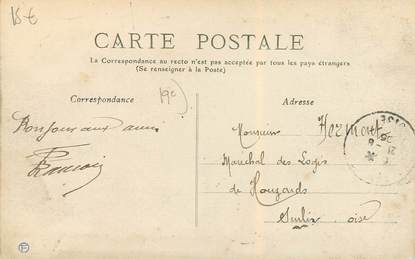 15 €
CARTE POSTALE
La Correspondance au recto n'est pas acceptée par tous les pays étrangers
(Se renseigner à la Poste)
Correspondance
Adresse
Bonjour aux amis
Francois
Monsieur Hermant
Maréchal des Logis
de Houzards
Senlis oise